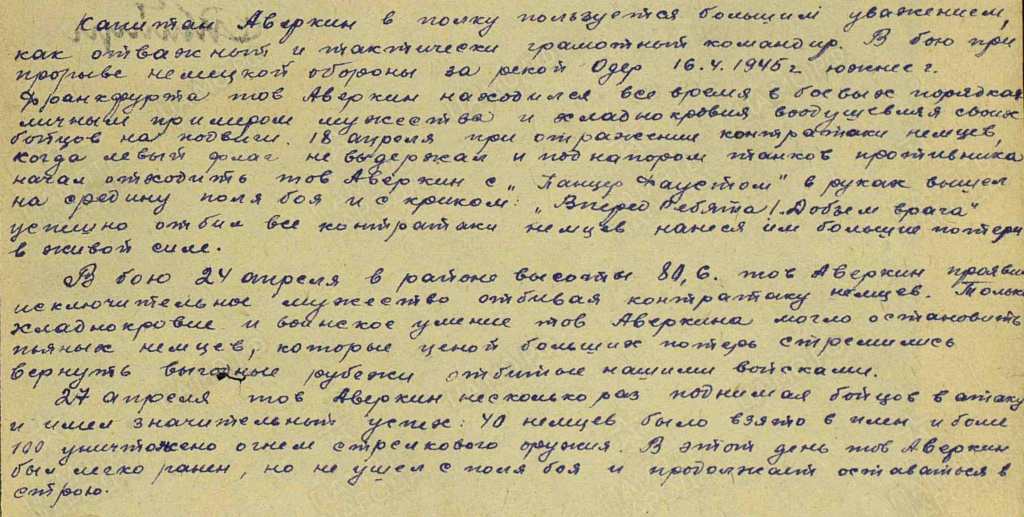 Капитан Аверкин в полку пользуется большим уважением,
как отважный и тактически грамотный командир. В бою при
прорыве немецкой обороны за рекой Одер 16.4.1945 г южнее г.
Франкфурта тов Аверкин находился все время в боевых порядках
личным примером мужества и хладнокровия воодушевляя своих
бойцов на подвиги. 18 апреля при отражении контратаки немцев,
когда левый флаг не выдержал и под напором танков противника
начал отходить тов Аверкин с „Панцер Фаустом" в руках вышел
на средину поля боя и с криком: „Вперед Ребята! Добьем врага"
успешно отбил все контратаки немцев нанеся им большие потери
в живой силе.
В бою 24 апреля в районе высоты 80,6. тов Аверкин проявил
исключительное мужество отбивая контратаку немцев. Только
хладнокровие и воинское умение тов Аверкина могло остановить
пьяных немцев, которые ценой больших потерь стремились
вернуть выгодные рубежи отбитые нашими войсками.
27 апреля тов Аверкин несколько раз поднимая бойцов в атаку
и имел значительный успех: 40 немцев было взято в плен и более
100 уничтожено огнем стрелкового оружия. В этот день тов Аверкин
был легко ранен, но не ушел с поля боя и продолжает оставаться в
строю.